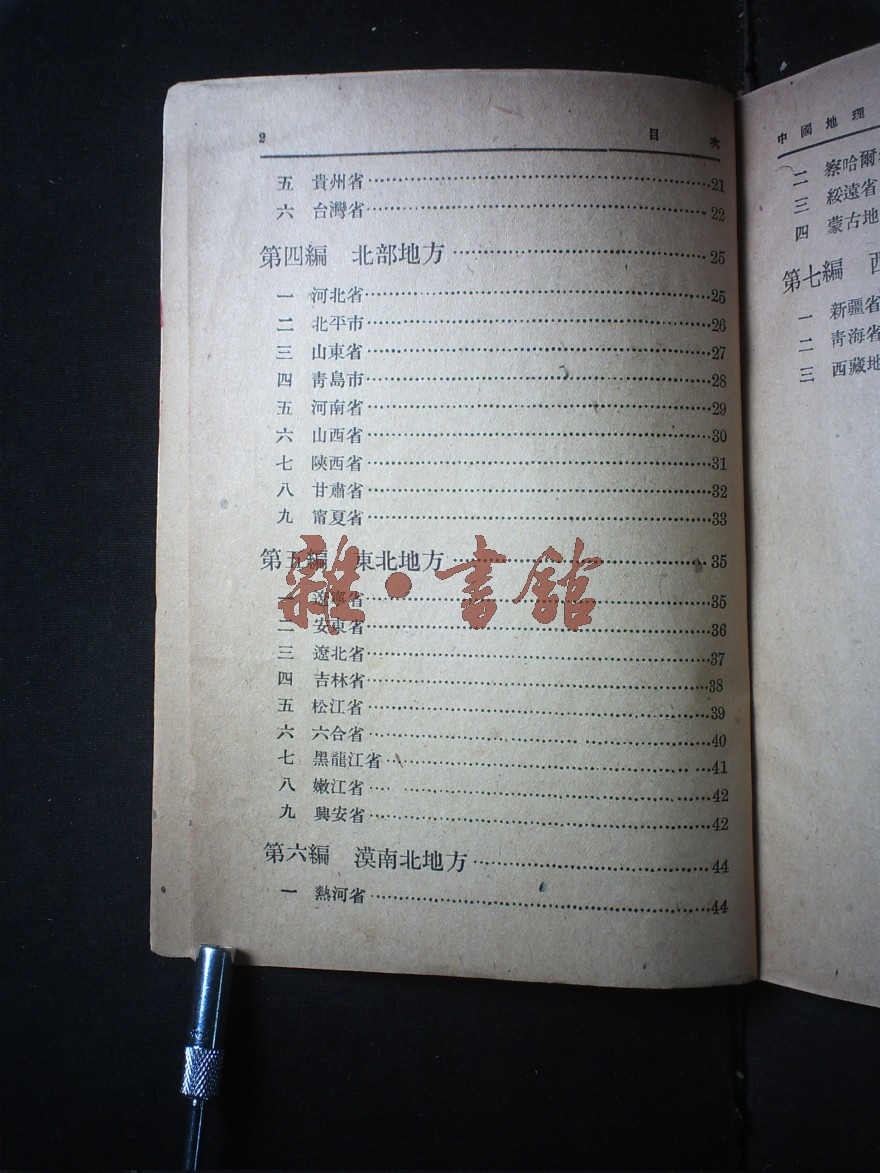 2 目 次
五 貴州省 21
六 台灣省 22
第四編 北部地方 25
一 河北省 25
二 北平市 26
三 山東省 27
四 靑島市 28
五 河南省 29
六 山西省 30
七 陝西省 31
八 甘肅省 32
九 甯夏省 33
第五編 東北地方 35
一 遼寧省 35
二 安東省 36
三 遼北省 37
四 吉林省 38
五 松江省 39
六 六合省 40
七 黑龍江省 41
八 嫩江省 42
九 興安省 42
第六編 漠南北地方 44
一 熱河省 44
雜·書館
中國地理
二 察哈爾
三 綏遠省
四 蒙古地
第七編 西
一 新疆省
二 靑海省
三 西藏地